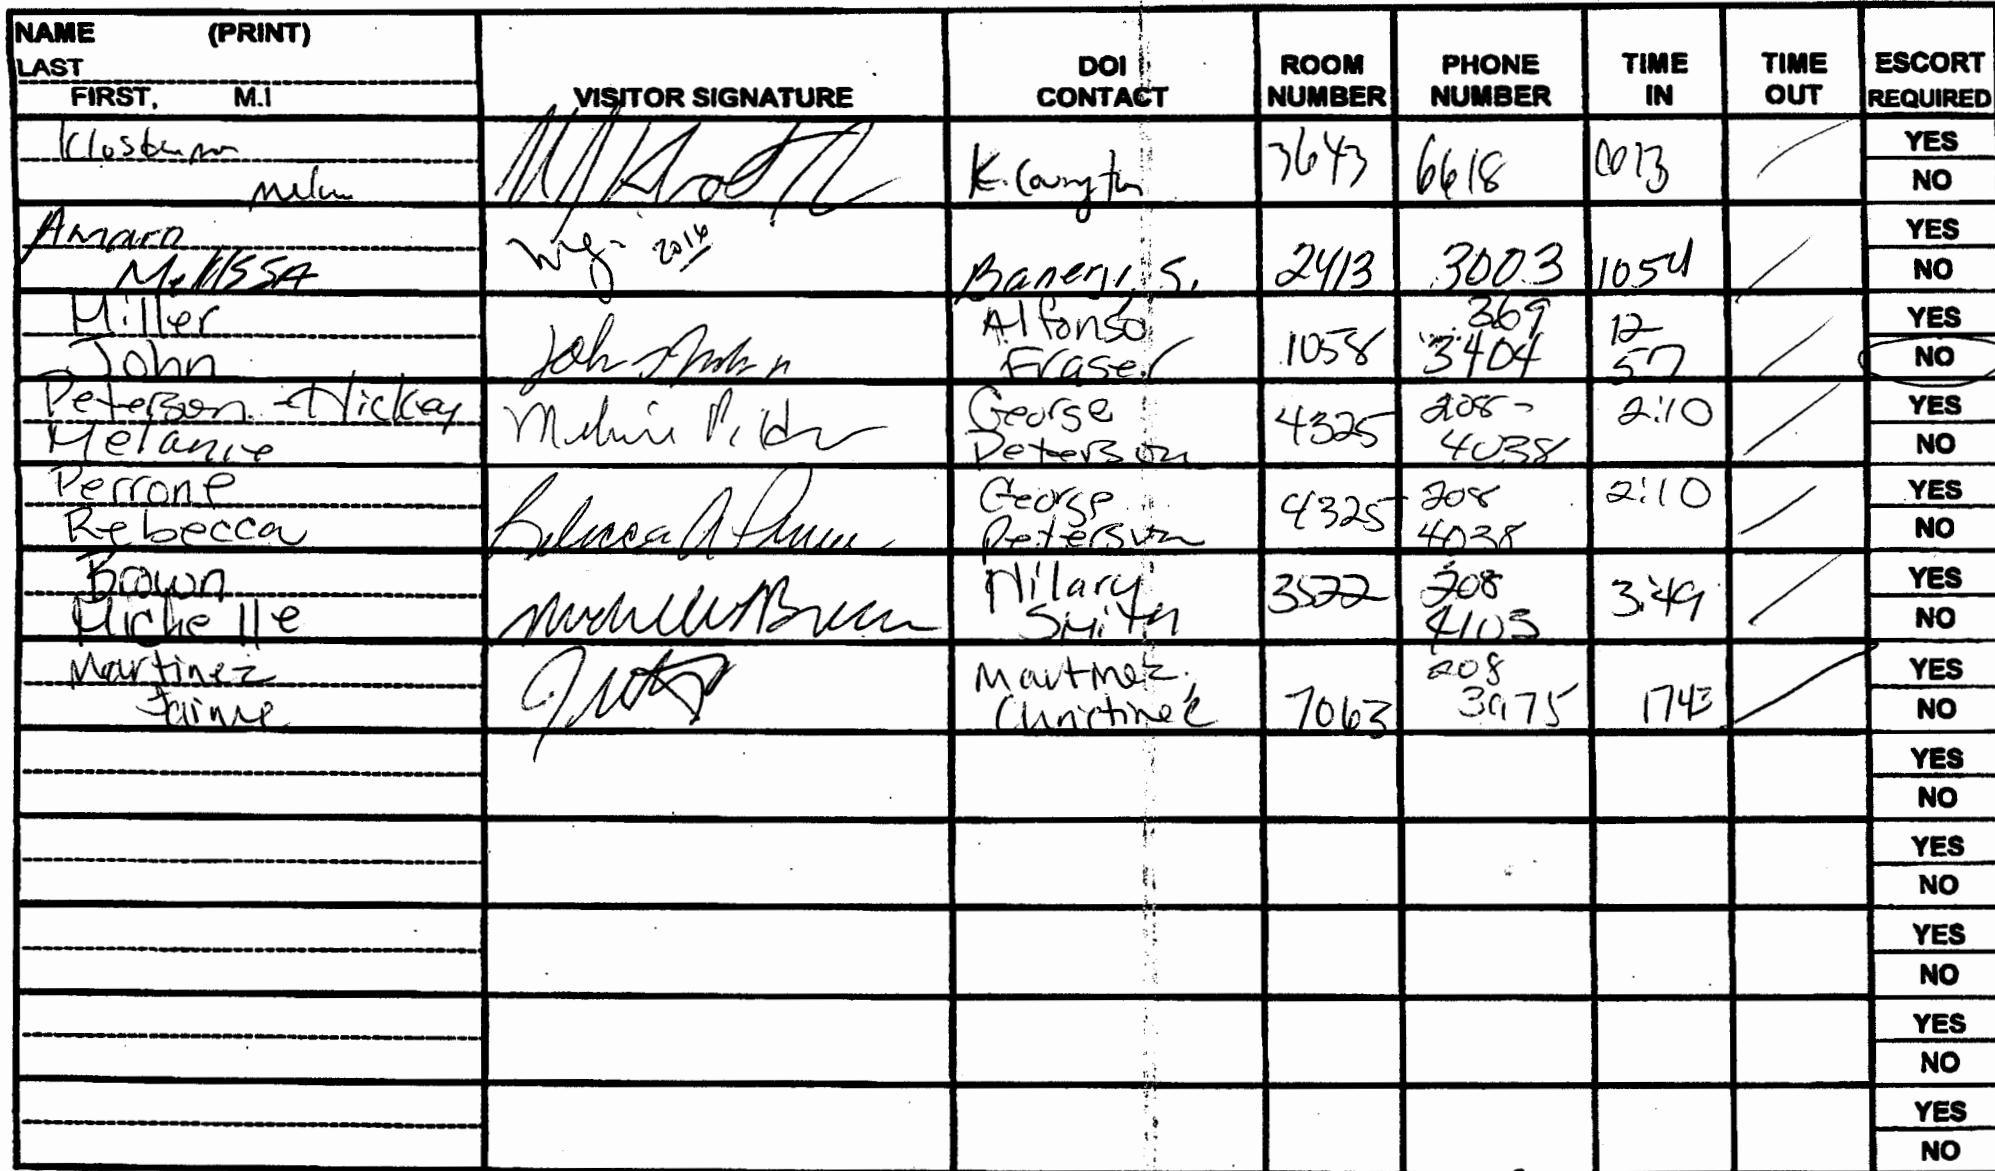 NAME (PRINT)
LAST
FIRST, M.I
VISITOR SIGNATURE
DOI
CONTACT
ROOM
NUMBER
PHONE
NUMBER
TIME
IN
TIME
OUT
ESCORT
REQUIRED
3643 6618
YES
NO
Amaro
Melissa
2016
S. 2413 3003 1054
YES
NO
Miller
John
John
Alfonso
Fraser
1058
369
3404
12
57
YES
NO
Peterson-Hickey
Melanie
George
Peterson
4325
208-
4038
2:10
YES
NO
Perrone
Rebecca
Rebecca A Perrone
George
Peterson
4325
208
4038
2:10
YES
NO
Brown
Michelle
Michelle Brown
Hilary
Smith
3522
208
4103
3:49
YES
NO
Martinez
Jaime
Martinez,
Christine
7063
208
3975
1743
YES
NO
YES
NO
YES
NO
YES
NO
YES
NO
YES
NO
YES
NO